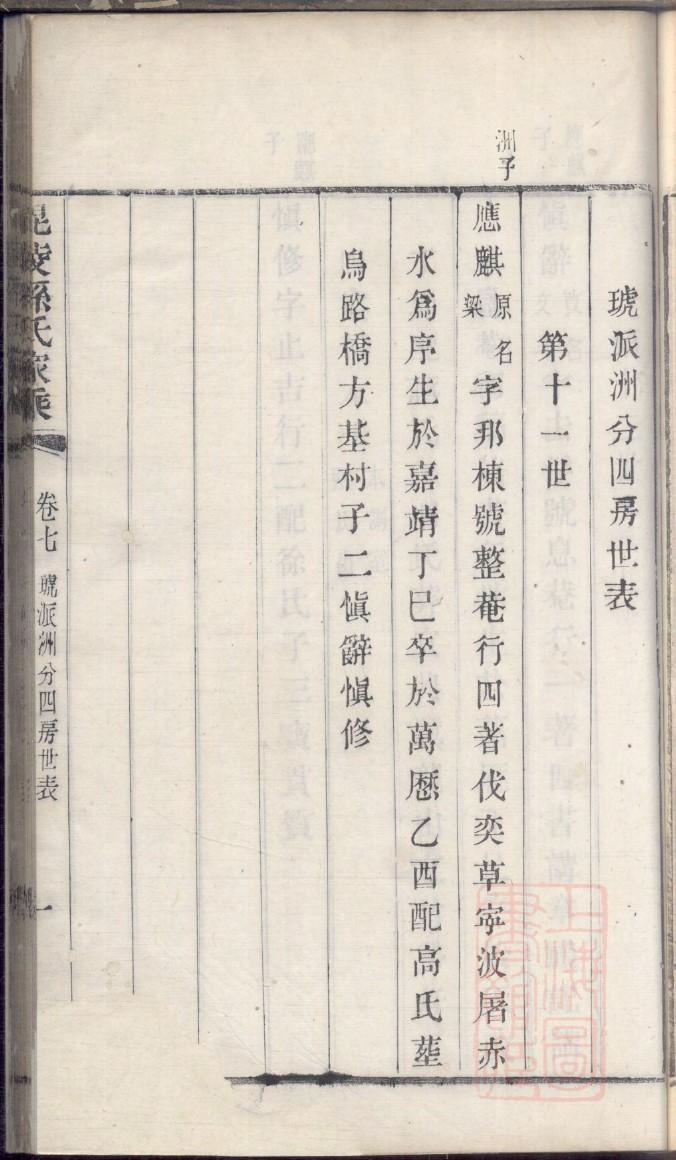 琥派洲分四房世表
第十一世
洲子
應麒原名梁字邦棟號整菴行四著伐奕草寧波屠赤
水爲序生於嘉靖丁巳卒於萬厯乙酉配高氏塟
烏路橋方基村子二愼辭愼修
毘陵孫氏家乘
卷七
琥派洲分四房世表
一